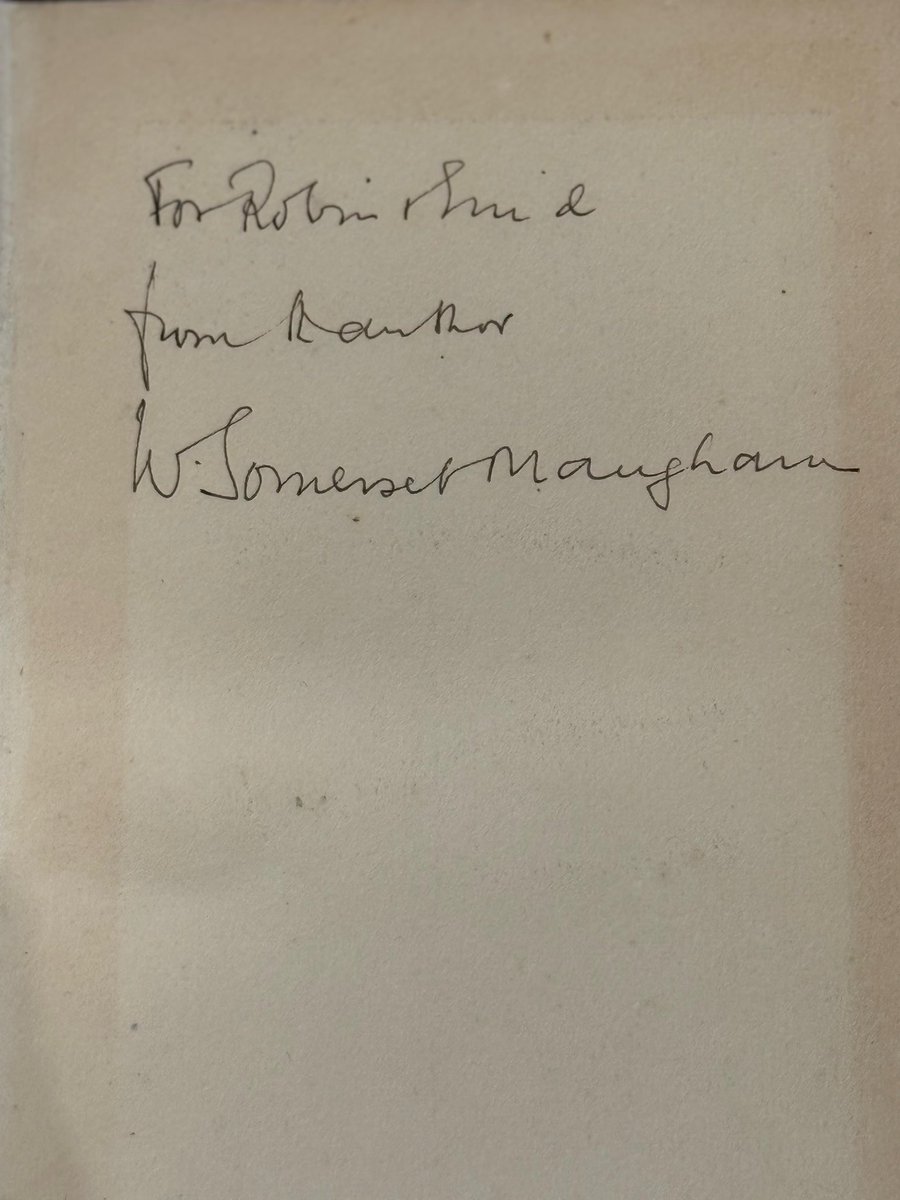 For Robin & Enid
from the author
W. Somerset Maugham